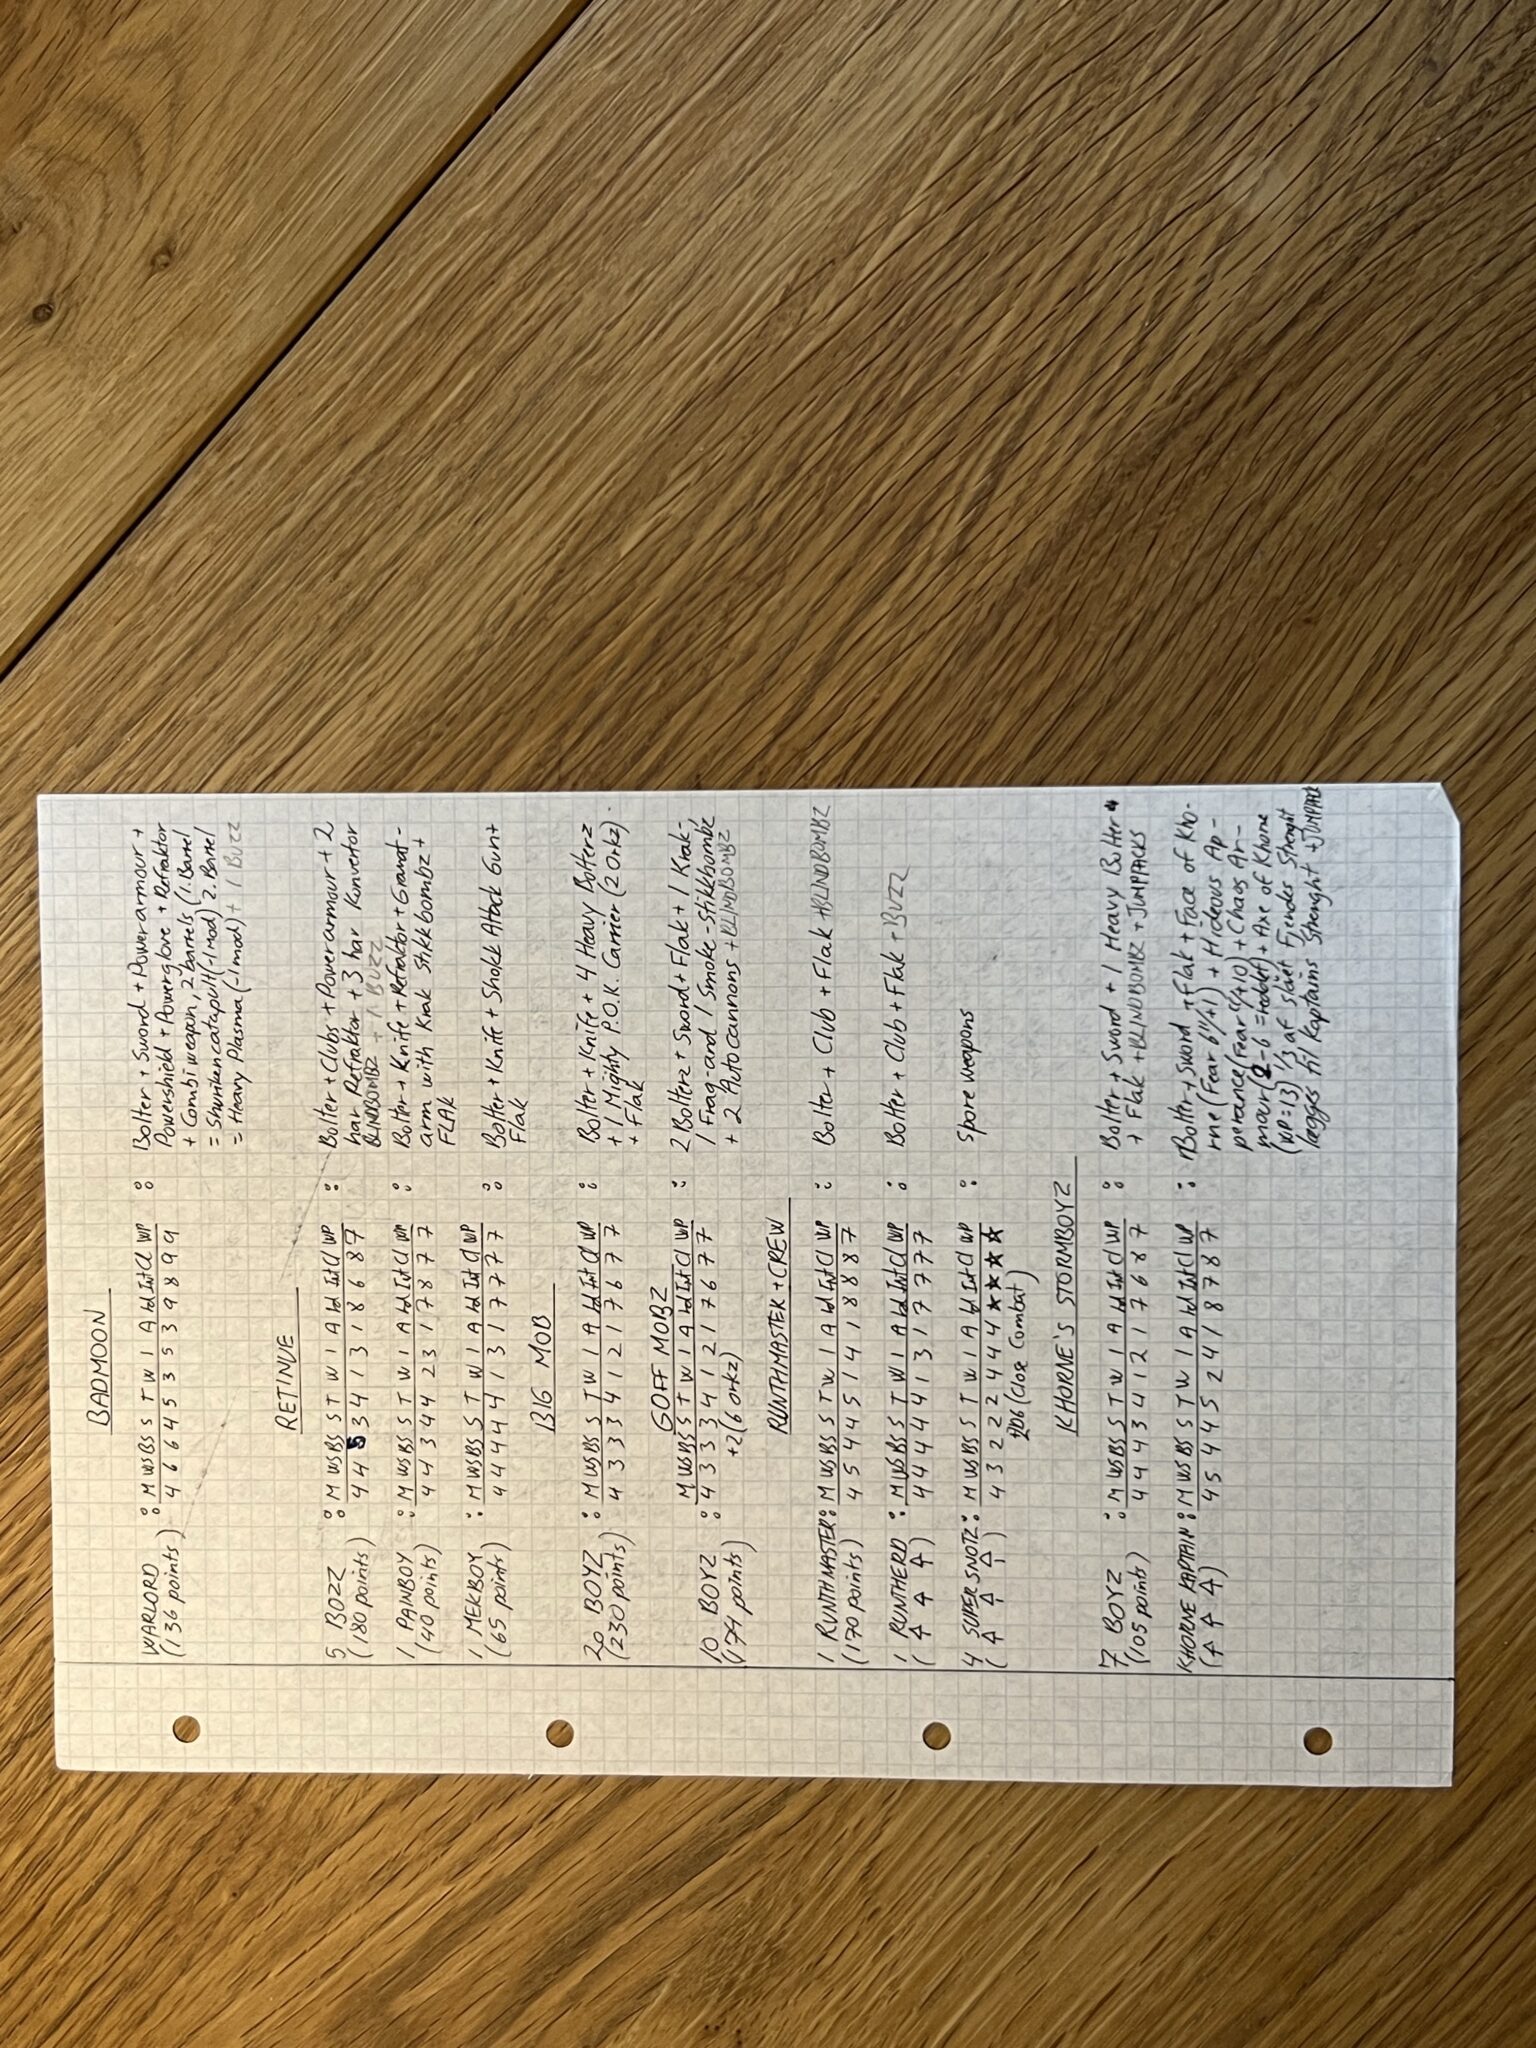 BADMOON
WARLORD : M WS BS S T W I A Ld Int Cl WP : Bolter + Sword + Powerarmour +
(136 points) 4 6 6 4 5 3 5 3 9 8 9 9 Powershield + Powerglove + Refraktor
+ Combi weapon, 2 barrels (1. Barrel
= Shuriken catapult (-1 Mod) 2. Barrel
= Heavy Plasma (-1 mod) + 1 BUZZ
RETINUE
5 BOZZ : M WS BS S T W I A Ld Int Cl WP : Bolter + Clubs + Powerarmour + 2
(180 points) 4 4 5 3 4 1 3 1 8 6 8 7 har Refraktor + 3 har Konvertor
BLINDBOMBZ + 1 BUZZ
1 PAINBOY : M WS BS S T W I A Ld Int Cl WP : Bolter + Knife + Refraktor + Granat-
(40 points) 4 4 3 4 4 2 3 1 7 8 7 7 arm with Krak Stikkbombz +
FLAK
1 MEKBOY : M WS BS S T W I A Ld Int Cl WP : Bolter + Knife + Shokk Attack Gun +
(65 points) 4 4 4 4 4 1 3 1 7 7 7 7 Flak
BIG MOB
20 BOYZ : M WS BS S T W I A Ld Int Cl WP : Bolter + Knife + 4 Heavy Bolterz
(230 points) 4 3 3 3 4 1 2 1 7 6 7 7 + 1 Mighty P.O.K. Carrier (2 Orkz)
+ Flak
GOFF MOBZ
10 BOYZ : M WS BS S T W I A Ld Int Cl WP : 2 Bolterz + Sword + Flak + 1 Krak-,
(174 points) 4 3 3 3 4 1 2 1 7 6 7 7 1 Frag- and 1 Smoke-Stikkbombz
+2 (6 orkz) + 2 Autocannons + BLINDBOMBZ
RUNTHMASTER + CREW
1 RUNTHMASTER : M WS BS S T W I A Ld Int Cl WP : Bolter + Club + Flak + BLINDBOMBZ
(170 points) 4 5 4 4 5 1 4 1 8 8 8 7
1 RUNTHERD : M WS BS S T W I A Ld Int Cl WP : Bolter + Club + Flak + BUZZ
(↑ ↑ ↑) 4 4 4 4 4 1 3 1 7 7 7 7
4 SUPER SNOTZ : M WS BS S T W I A Ld Int Cl WP : Spore weapons
(↑ ↑ ↑ ↑) 4 3 2 2 2 4 4 4 ★ ★ ★ ★
2D6 (Close Combat)
KHORNE'S STORMBOYZ
7 BOYZ : M WS BS S T W I A Ld Int Cl WP : Bolter + Sword + 1 Heavy Bolter +
(105 points) 4 4 4 3 4 1 2 1 7 6 8 7 + Flak + BLINDBOMBZ + JUMPPACKS
KHORNE KAPTAIN : M WS BS S T W I A Ld Int Cl WP : Bolter + Sword + Flak + Face of Kho-
(↑ ↑ ↑) 4 5 4 4 5 2 4 1 8 7 8 7 rne (Fear 6"/+1) + Hideous Ap-
perance (Fear +10) + Chaos Ar-
mour (2-6 = reddet) + Axe of Khorne
(WP=13) 1/3 af slået Fjendes Strenght
lægges til Kaptains Strenght + JUMPPACK